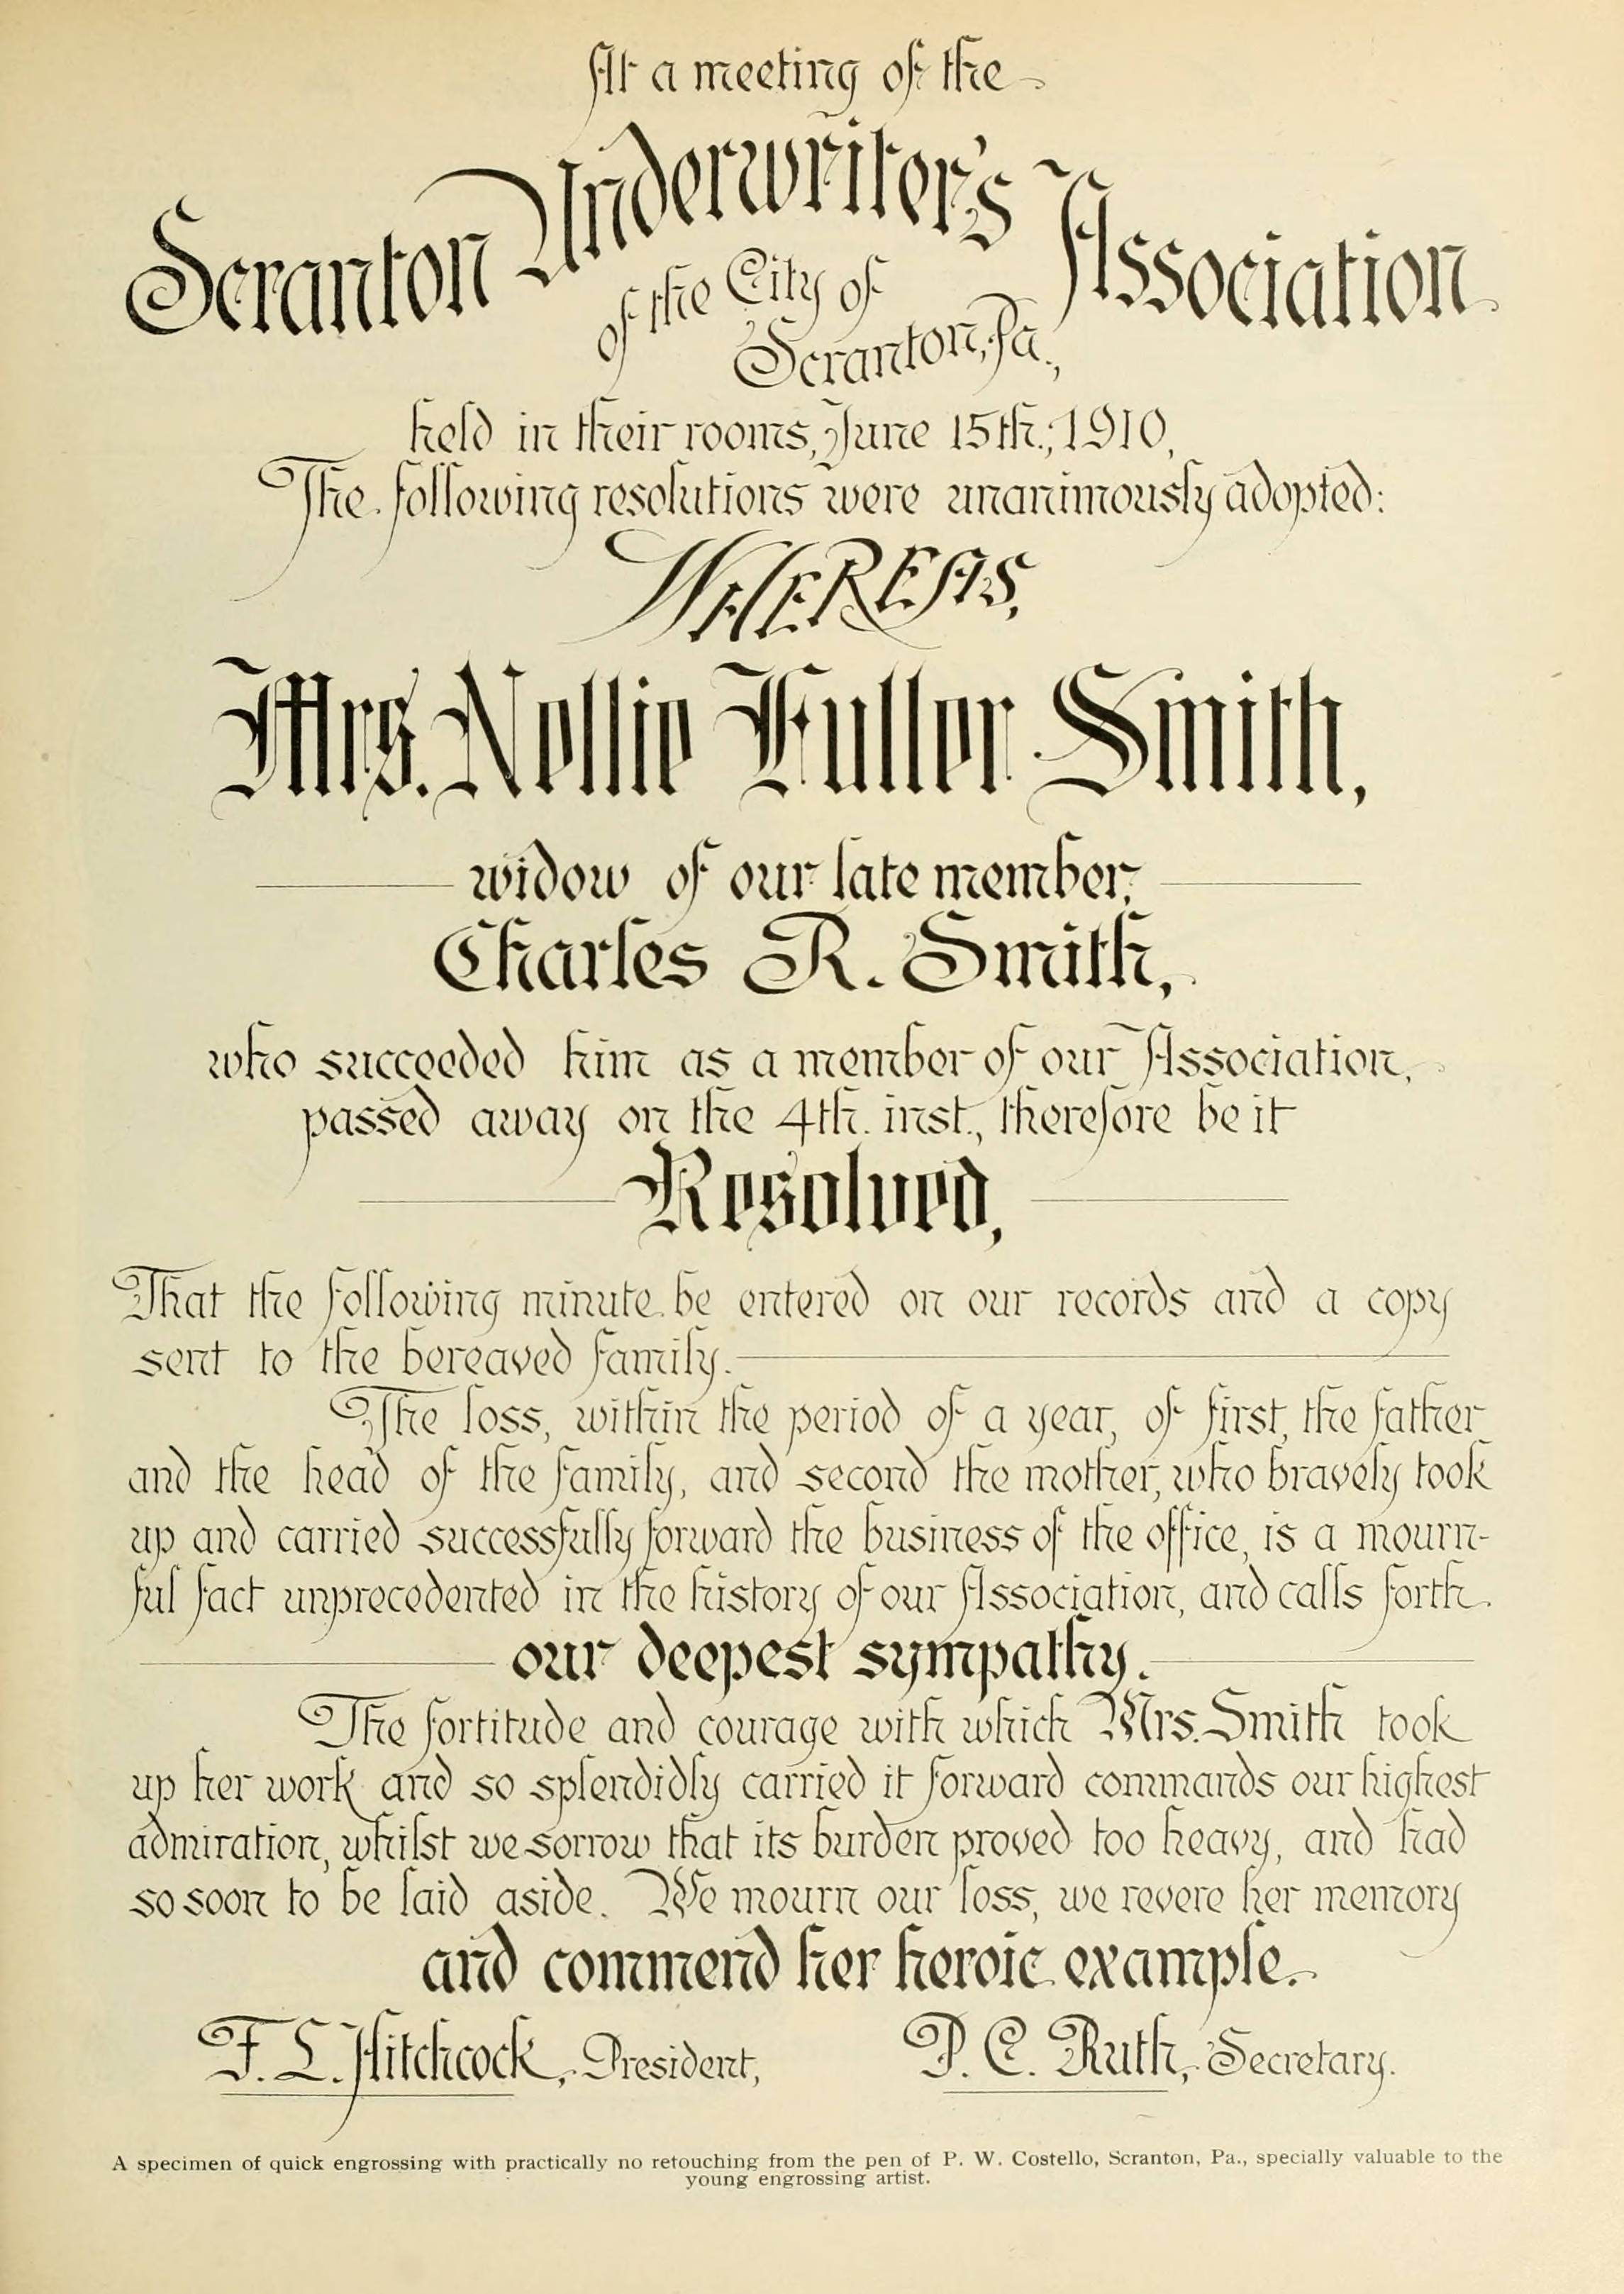 At a meeting of the
Scranton Underwriter's Association
of the City of
Scranton, Pa.,
held in their rooms, June 15th., 1910,
The following resolutions were unanimously adopted:
WHEREAS,
Mrs. Nellie Fuller Smith,
widow of our late member,
Charles R. Smith,
who succeeded him as a member of our Association,
passed away on the 4th. inst., therefore be it
Resolved,
That the following minute be entered on our records and a copy
sent to the bereaved family.
The loss, within the period of a year, of first, the father
and the head of the family, and second the mother, who bravely took
up and carried successfully forward the business of the office, is a mourn-
ful fact unprecedented in the history of our Association, and calls forth
our deepest sympathy.
The fortitude and courage with which Mrs. Smith took
up her work and so splendidly carried it forward commands our highest
admiration, whilst we sorrow that its burden proved too heavy, and had
so soon to be laid aside. We mourn our loss, we revere her memory
and commend her heroic example.
F. L. Hitchcock, President, P. C. Ruth, Secretary.
A specimen of quick engrossing with practically no retouching from the pen of P. W. Costello, Scranton, Pa., specially valuable to the
young engrossing artist.